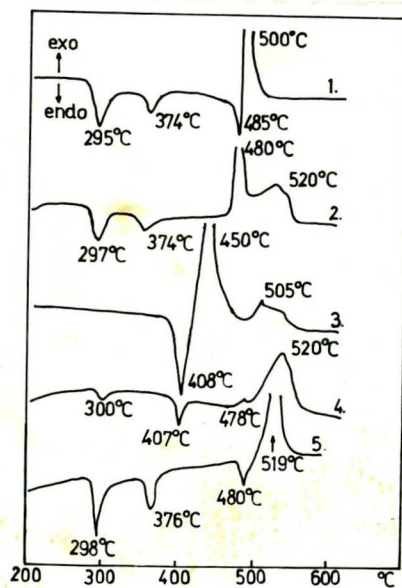 exo
endo
500°C
1.
295°C
374°C
485°C
480°C
520°C
2.
297°C
374°C
450°C
505°C
3.
408°C
520°C
300°C
407°C
478°C
4.
5.
519°C
480°C
376°C
298°C
200 300 400 500 600 °C